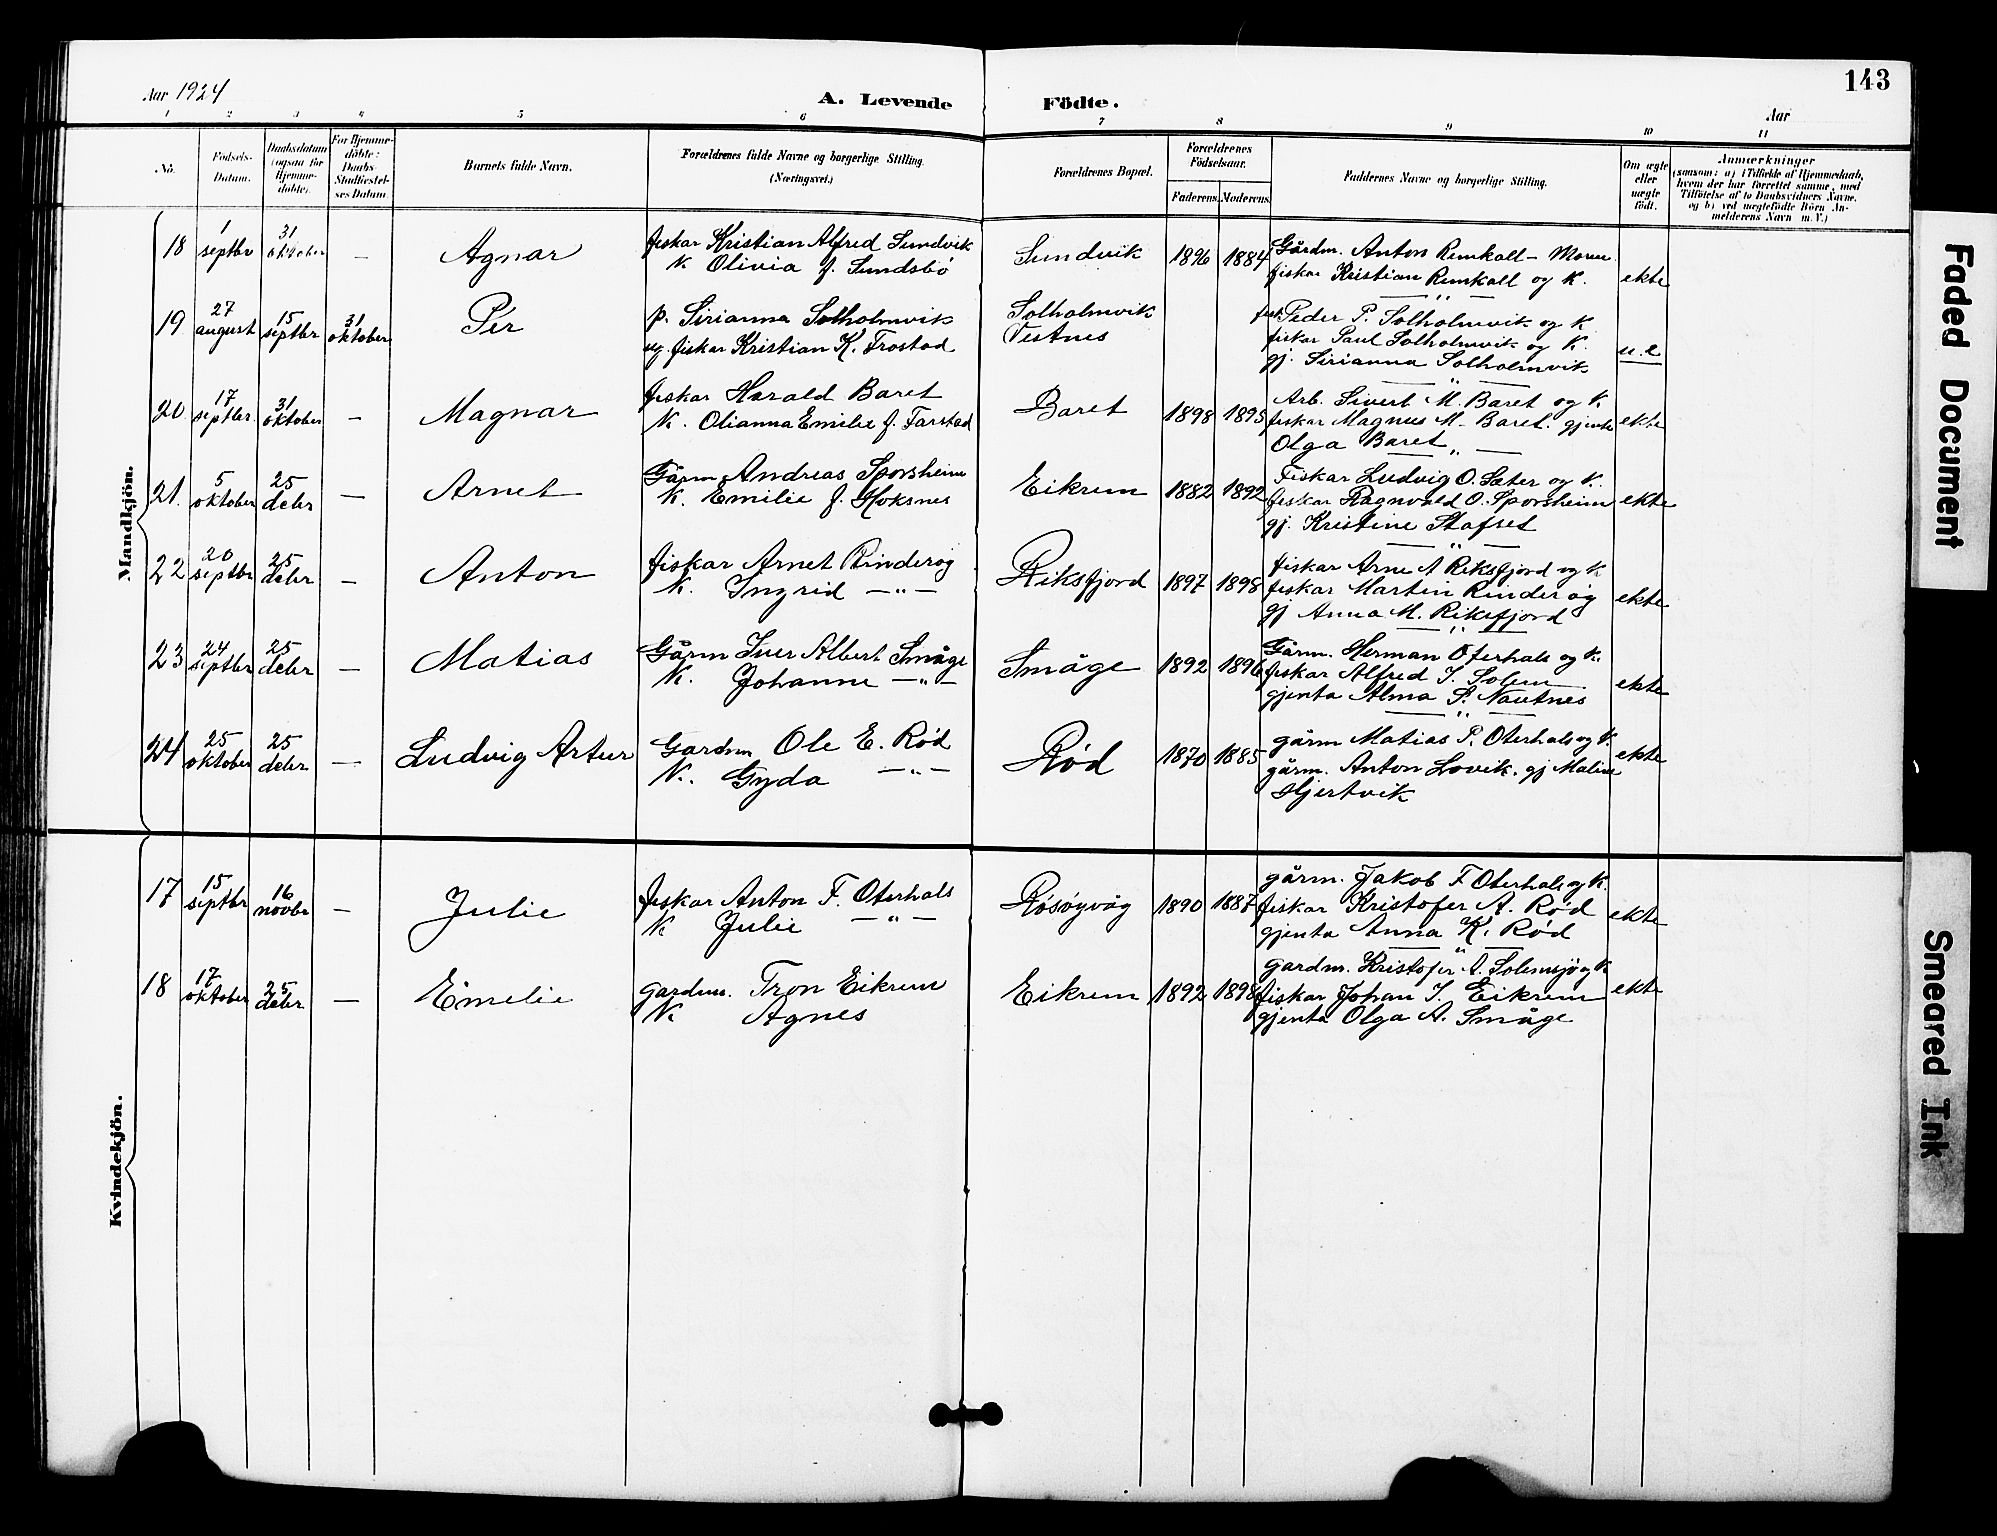 143
Aar 1924
A. Levende Födte.
Aar
1 2 3 4 5 6 7 8 9 10 11
No.
Födsels-Datum.
Daabsdatum (ogsaa for Hjemme-döbte).
For Hjemme-döbte: Daabs-Stadfæstel-ses Datum.
Barnets fulde Navn.
Forældrenes fulde Navne og borgerlige Stilling.
(Næringsvei.)
Forældrenes Bopæl.
Forældrenes Födselsaar.
Faderens. Moderens.
Faddernes Navne og borgerlige Stilling.
Om ægte eller uægte födt.
Anmærkninger
(saasom: a) i Tilfælde af Hjemmedaab,
hvem der har forrettet samme, med
Tilföielse af to Daabsvidners Navne,
og b) ved uægtefödte Börn An-
melderens Navn m. V.)
Mandkjön.
18 1 septbr 31 oktober — Agnar
fiskar Kristian Alfred Sundvik
K. Olivia f. Sundsbö
Sundvik 1896 1884
Gårdm. Anton Remkall-
fiskar Kristian Remkall og K.
ekte
19 27 august 15 septbr 31 oktober Per
p. Sirianna Solholmvik
ug. fiskar Kristian K. Frostad
Solholmvik
Vestnes
fisk Peder P. Solholmvik og K
fiskar Paul Solholmvik og K.
gj. Sirianna Solholmvik
u.e
20 17 septbr. 31 oktober — Magnar
fiskar Harald Baret
K. Olianna Emilie f. Farstad
Baret 1898 1895
Arb. Sivert M. Baret og K.
fiskar Magnus M. Baret. gjenta
Olga Baret
ekte
21. 5 oktober 25 debr — Arnet
Gårm Andreas Sporsheim
K. Emilie f. Hoksnes
Eikrem 1882 1892
Fiskar Ludvig O. Sæter og K.
fiskar Ragnvald O. Sporsheim
gj. Kristine Stafset
ekte
22 20 septbr 25 debr — Anton
fiskar Arnet Rinderøg
K. Ingrid — " —
Riksfjord 1897 1898
fiskar Arne A Riksfjord og K
fiskar Martin Rinderøg
gj Anna M. Riksfjord
ekte
23 24 septbr 25 debr — Matias
Gårm Iver Albert Småge
K. Johanne — " —
Småge 1892 1896
Gårm. Herman Oterhals og K.
fiskar Alfred J. Solem
gjenta Alma P. Nautnes
ekte
24 25 oktober 25 debr — Ludvig Artur
Gardm Ole E. Rød
K. Gyda — " —
Rød 1870 1885
gårm Matias P. Oterhals og K.
gårm. Anton Lovik. gj Malene
Hjertvik
ekte
Kvindekjön.
17 15 septbr 16 novbr — Julie
fiskar Anton F. Oterhals
K Julie — " —
Røsøyvåg 1890 1887
gårm. Jakob F Oterhals og K.
fiskar Kristofer A. Rød
gjenta Anna K. Rød
ekte
18 17 oktober 25 debr — Emelie
gardm. Tron Eikrem
K. Agnes
Eikrem 1892 1898
gardm. Kristofer A. Solemsjø og K
fiskar Johan J. Eikrem
gjenta Olga A. Småge
ekte
Faded Document
Smeared Ink